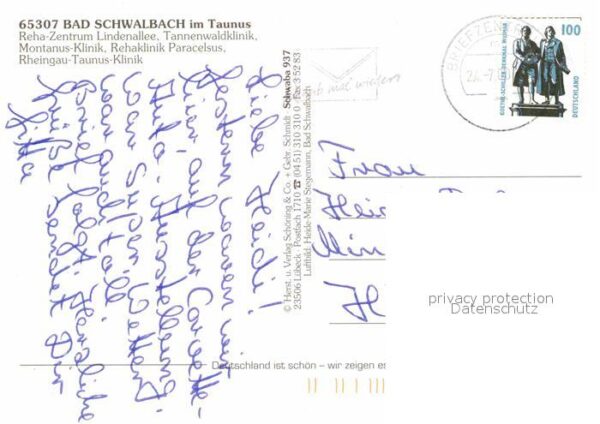 65307 BAD SCHWALBACH im Taunus
Reha-Zentrum Lindenallee, Tannenwaldklinik,
Montanus-Klinik, Rehaklinik Paracelsus,
Rheingau-Taunus-Klinik
Liebe Heidi!
Gestern waren wir
hier auf der Corvette-
Auto-Ausstellung.
War Super. Wetter
war auch toll.
Grüße folgt Herzliche
sendet Dir
© Herst. u. Verlag Schöning & Co. + Gebr. Schmidt · Schwaba 937
23506 Lübeck · Postfach 1710 ☎ (04 51) 310 310 0 · Fax 3 52 83
Luftbild, Heide-Marie Stegemann, Bad Schwalbach
BRIEFZENTRUM
100
GOETHE-SCHILLER-DENKMAL WEIMAR
DEUTSCHLAND
mal wieder
Frau
Hei
Min
H
privacy protection
Datenschutz
Deutschland ist schön – wir zeigen es